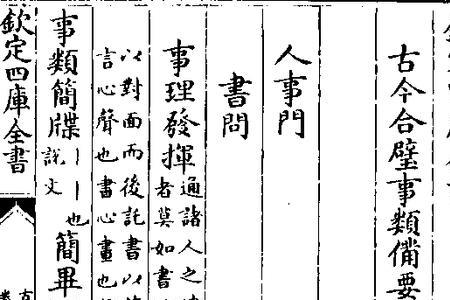 古今合璧事類備要
人事門
書問
事理發揮通諸人之
者莫如書
以對面而後託書以
言心聲也書心畫也
事類簡牒｜｜也簡畢
說文
欽定四庫全書